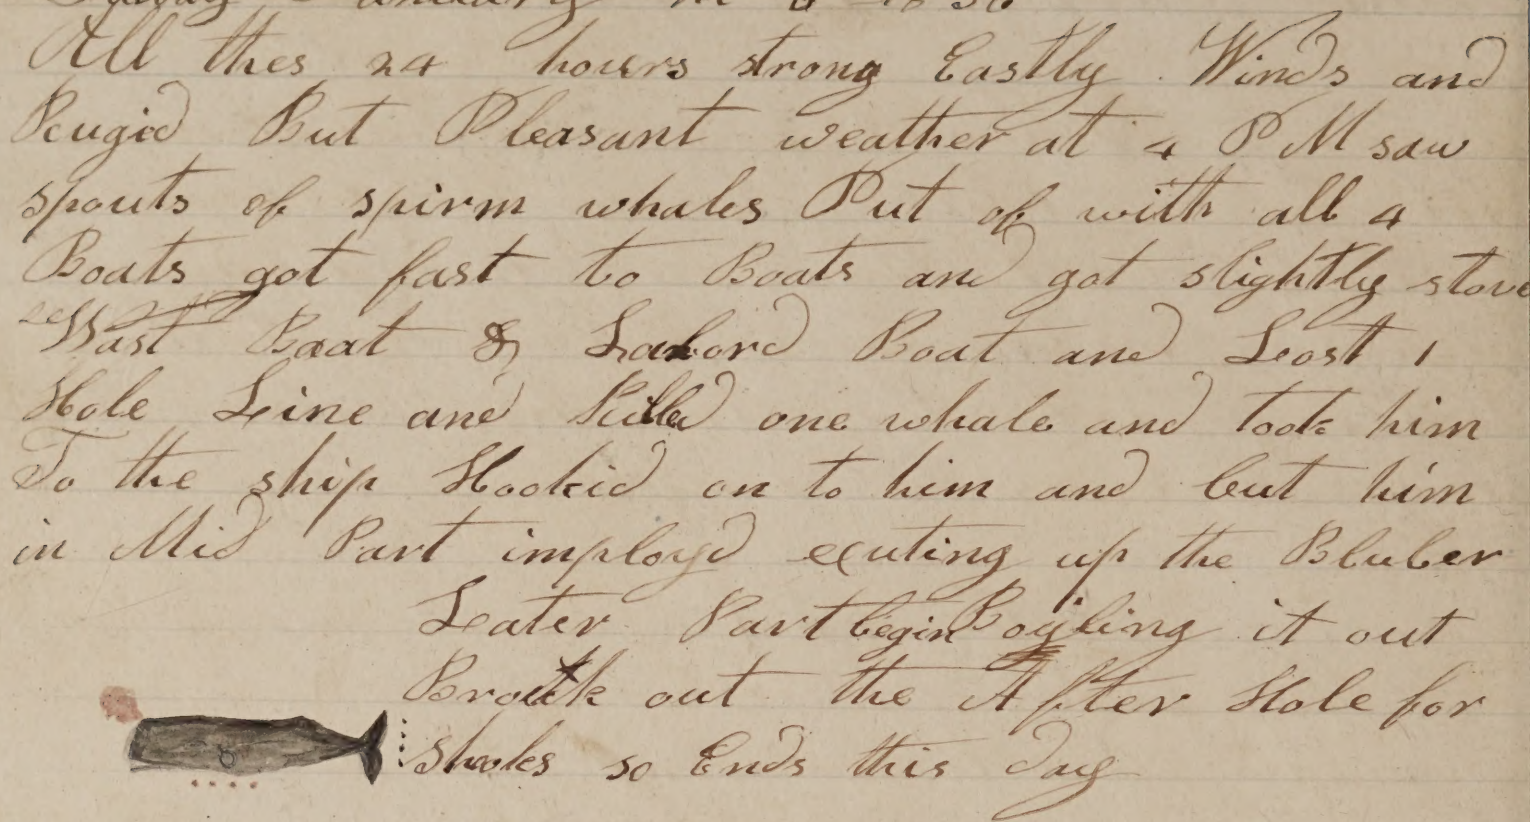 All thes 24 hours strong Eastly Winds and
Rugid But Pleasant weather at 4 PM saw
spouts of spirm whales Put of with all 4
Boats got fast to Boats and got slightly stove
Wast Boat & Labord Boat and Lost 1
Hole Line and Killed one whale and took him
To the ship Hookid on to him and Cut him
in Mid Part imployd cuting up the Bluber
Later Part begin Boyling it out
out the After Hole for
shooks so Ends this day